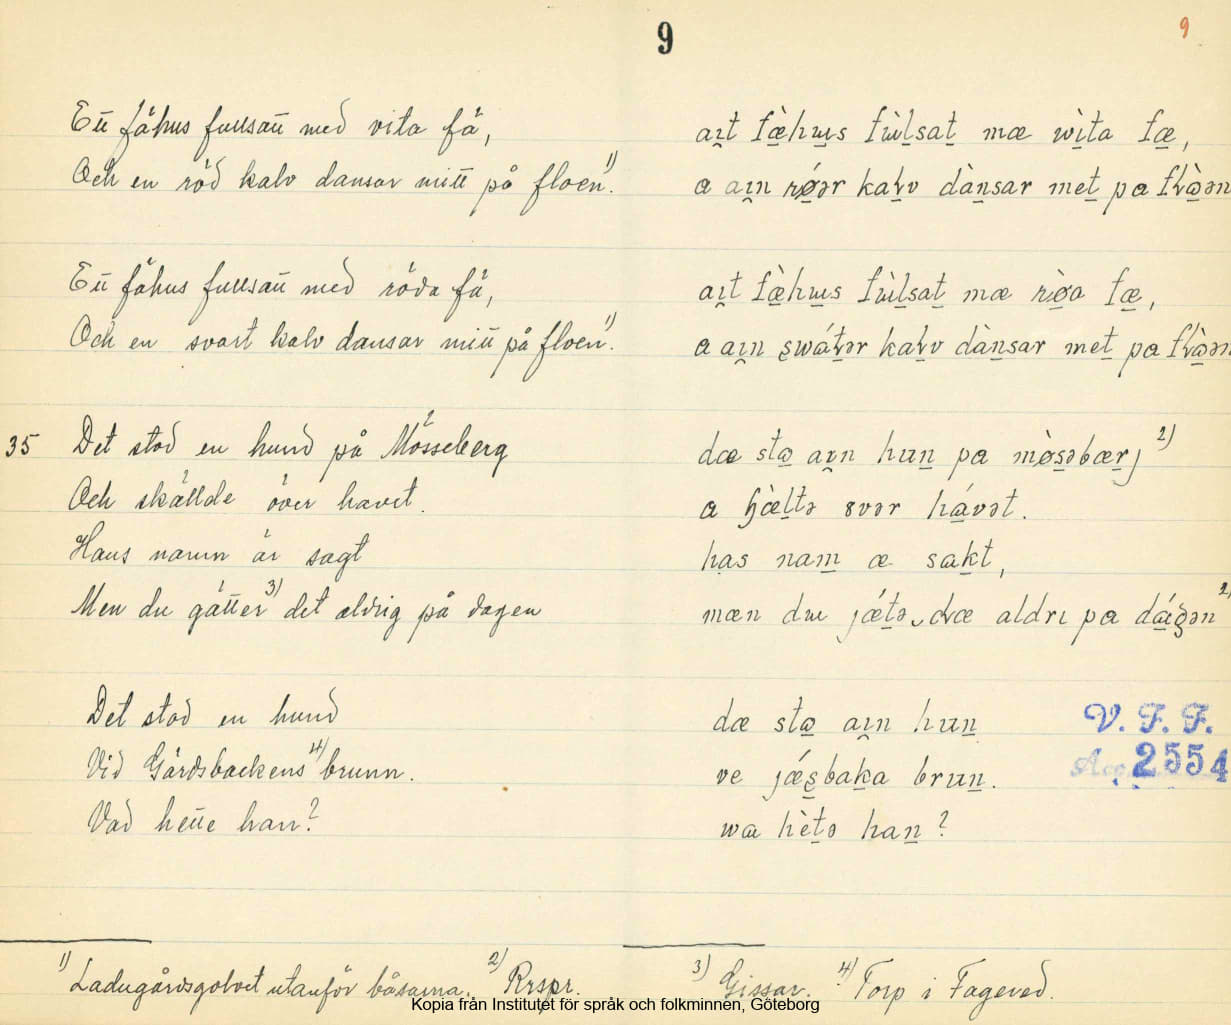 9
9
Ett fähus fullsatt med vita fä,
Och en röd kalv dansar mitt på floen 1).
Ett fähus fullsatt med röda fä,
Och en svart kalv dansar mitt på floen 1).
35 Det stod en hund på Mösseberg
Och skällde över havet.
Hans namn är sagt
Men du gätter 3) det aldrig på dagen
Det stod en hund
Vid Gärdsbackens 4) brunn.
Vad hette han?
aı̯t fæ̀hɯs fɯ̀lsat mæ wìta fæ,
a aı̯n rǿər kaɽv dànsar met pa fɽàən
aı̯t fæ̀hɯs fɯ̀lsat mæ rø̀a fæ,
a aı̯n swáɽər kaɽv dànsar met pa fɽàən
dæ sta aı̯n hun pa mø̀səbærj 2)
a ɧæ̀ltə ɞvər hávət.
has nam æ sakt,
mæn dɯ jǽtə dæ aldrı pa dáɡən 2)
dæ sta aı̯n hun
ve jǽsbaka brun.
wa hètə han?
V. F. F.
Acc. 2554
1) Ladugårdsgolvet utanför båsarna. 2) Rrspr.
3) Gissar. 4) Torp i Fagered.
Kopia från Institutet för språk och folkminnen, Göteborg